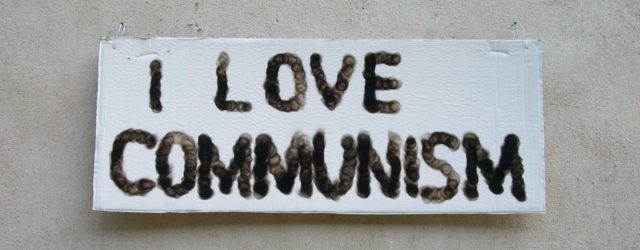 I LOVE
COMMUNISM